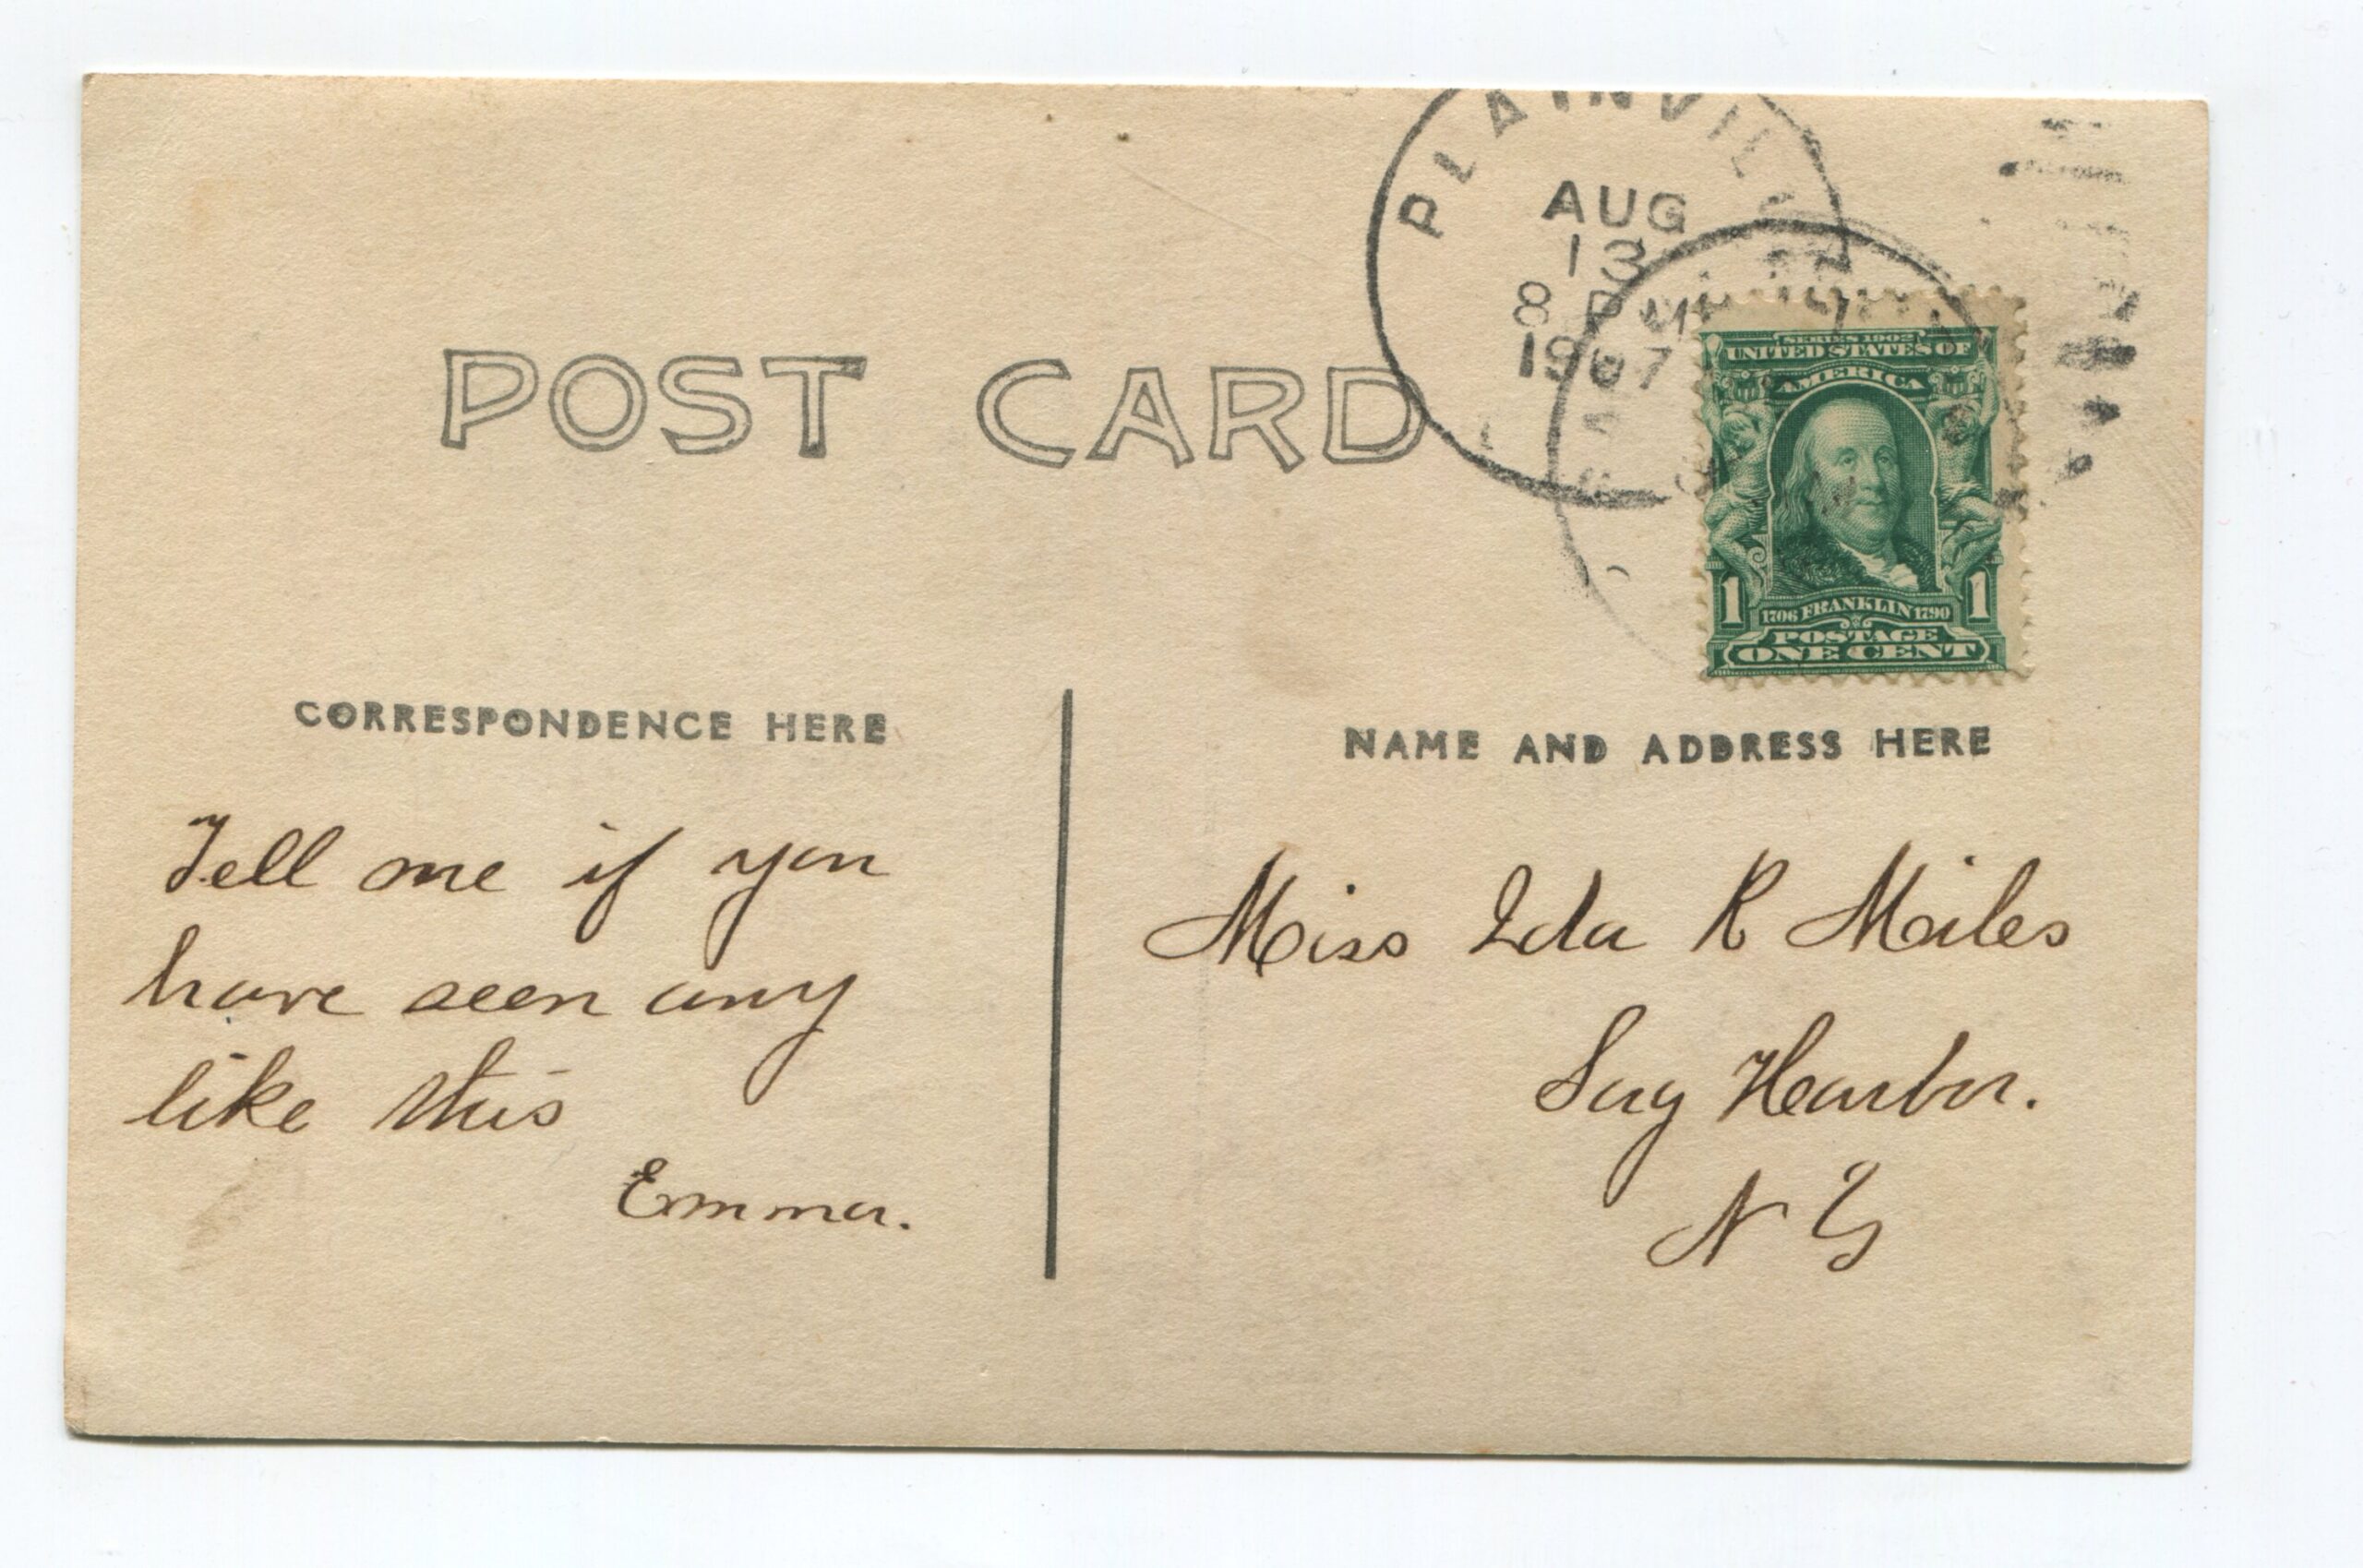 PLAINVILL
AUG
13
8 PM
1907
POST CARD
SERIES 1902
UNITED STATES OF
AMERICA
1 1
1706 FRANKLIN 1790
POSTAGE
ONE CENT
CORRESPONDENCE HERE
NAME AND ADDRESS HERE
Tell me if you
have seen any
like this
Emma.
Miss Ida R Miles
Sag Harbor.
N Y